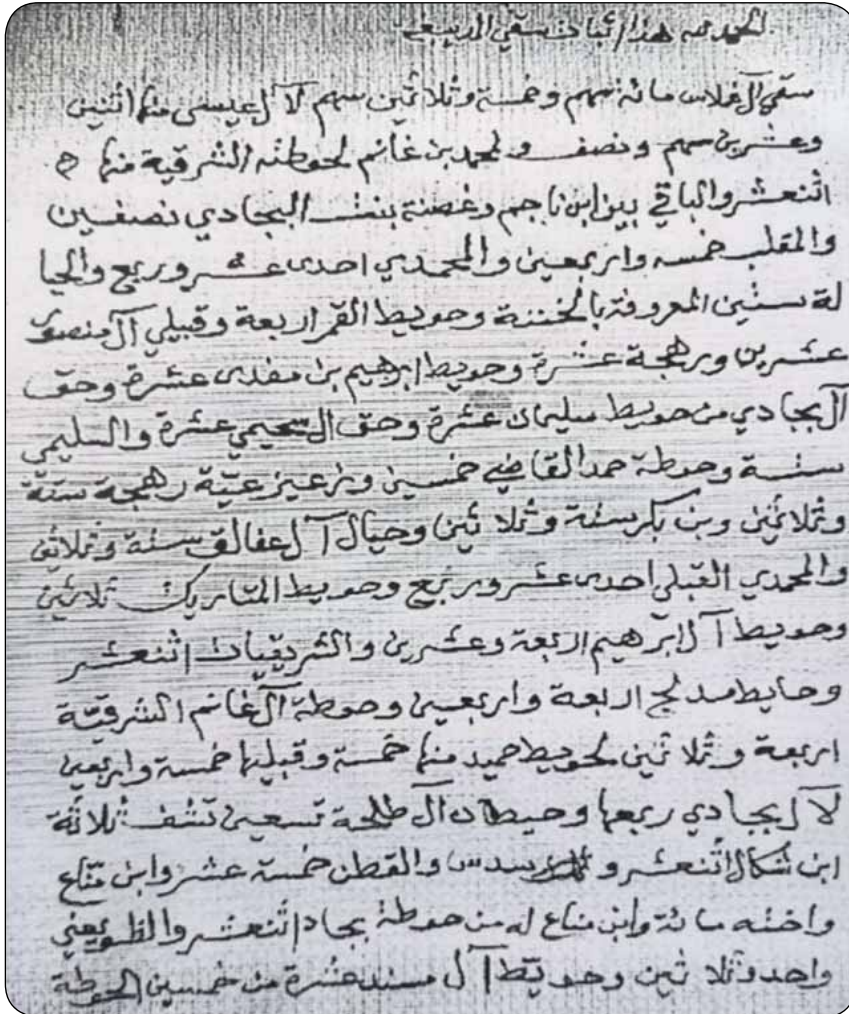 الحمد لله هذا اثبات سقي الربيعية
سقي آل غلاس مائة سهم وخمسة وثلاثين سهم لا آل عيسى منها اثنين
وعشرين سهم ونصف ولمحمد بن غانم لحوطته الشرقية منها
اثنعشر والباقي بين ابن ناجم وغصنة بنت البجادي نصفين
والمقلب خمسه واربعين والمحمدي احدى عشر وربع والحيا
لة ستين المعروفة بالخننة وحويط القمر اربعة وقبيلي آل منصور
عشرين ورهجة عشرة وحويط ابرهيم بن مفدى عشرة وحق
آل بجادي من حويط سليمان عشرة وحق ال سحيمي عشرة والسليمي
ستة وحوطة حمد القاضي خمسين رهجة ستة
وثلاثين وبن بكر ستة وثلاثين وحيال آل عفالق ستة وثلاثين
والمحمدي القبلي احدى عشر وربع وحويط المتاريك ثلاثين
وحويط آل ابرهيم اربعة وعشرين والشريقيات اثنعشر
وحايط مدلج اربعة واربعين وحوطة آل غانم الشرقية
اربعة وثلاثين لحويط حميد منها خمسة وقبليها خمسة واربعين
لا آل بجادي ربعها وحيطان آل طلحة تسعين تشف ثلاثة
ابن شكال اثنعشر و سدس والقطن خمسة عشر وابن مناع
واخته مائة وابن مناع له من حوطة بجاد اثنعشر والظويعني
واحد وثلاثين وحويط آل مسند عشرة من خمسين الحوطة